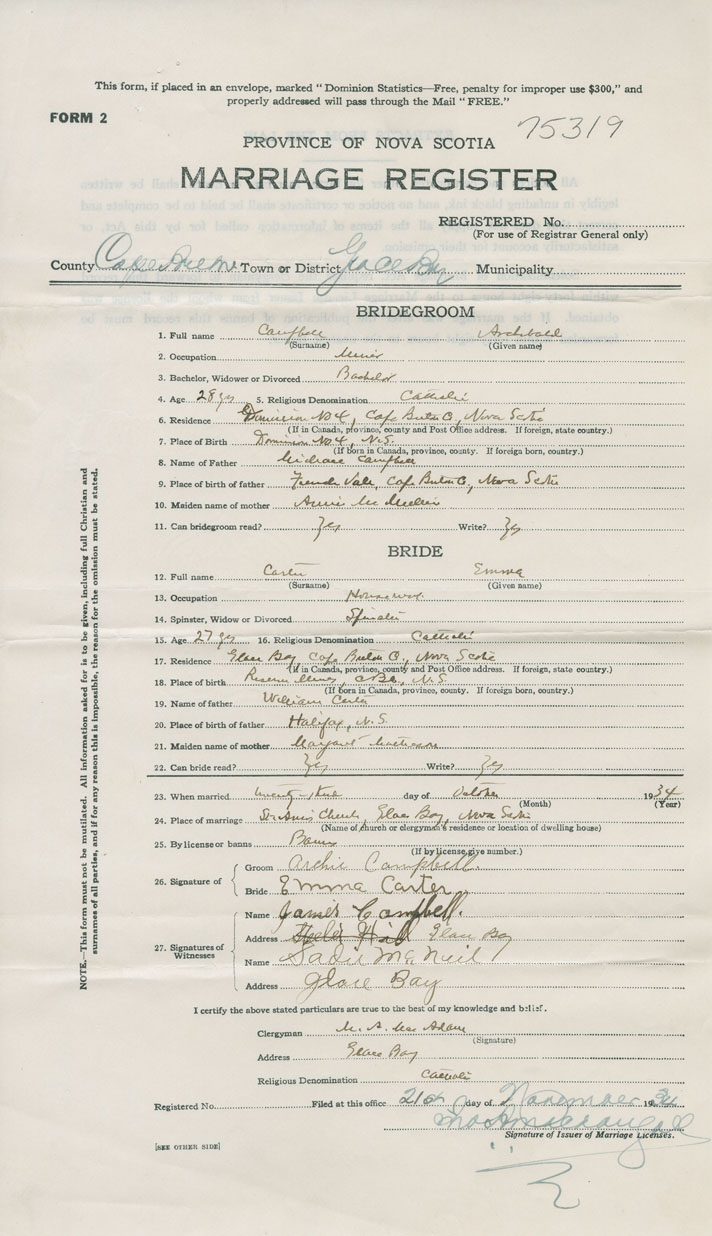 This form, if placed in an envelope, marked " Dominion Statistics—Free, penalty for improper use $300," and
properly addressed will pass through the Mail " FREE."
FORM 2
75319
PROVINCE OF NOVA SCOTIA
MARRIAGE REGISTER
REGISTERED No.
(For use of Registrar General only)
County Cape Breton Town or District Glace Bay Municipality
BRIDEGROOM
1. Full name Campbell Archibald
(Surname) (Given name)
2. Occupation Miner
3. Bachelor, Widower or Divorced Bachelor
4. Age 28 yrs 5. Religious Denomination Catholic
6. Residence Dominion No 4, Cape Breton Co, Nova Scotia
(If in Canada, province, county and Post Office address. If foreign, state country.)
7. Place of Birth Dominion No 4, N.S.
(If born in Canada, province, county. If foreign born, country.)
8. Name of Father Michael Campbell
9. Place of birth of father French Vale, Cape Breton Co, Nova Scotia
10. Maiden name of mother Annie
11. Can bridegroom read? Yes Write? Yes
BRIDE
12. Full name Carter Emma
(Surname) (Given name)
13. Occupation
14. Spinster, Widow or Divorced Spinster
15. Age 27 yrs 16. Religious Denomination Catholic
17. Residence Glace Bay Cape Breton Co., Nova Scotia
(If in Canada, province, county and Post Office address. If foreign, state country.)
18. Place of birth Reserve Mines, C.B., N.S.
(If born in Canada, province, county. If foreign born, country.)
19. Name of father William Carter
20. Place of birth of father Halifax, N.S.
21. Maiden name of mother Margaret
22. Can bride read? Yes Write? Yes
23. When married day of October 1934
(Month) (Year)
24. Place of marriage St Ann's Church, Glace Bay, Nova Scotia
(Name of church or clergyman's residence or location of dwelling house)
25. By license or banns Banns
(If by license, give number.)
26. Signature of
Groom Archie Campbell.
Bride Emma Carter
27. Signatures of Witnesses
Name James Campbell.
Address Glace Bay
Name Sadie McNeil
Address Glace Bay
NOTE.—This form must not be mutilated. All information asked for is to be given, including full Christian and
surnames of all parties, and if for any reason this is impossible, the reason for the omission must be stated.
I certify the above stated particulars are true to the best of my knowledge and belief.
Clergyman M. A. MacAdam
(Signature)
Address Glace Bay
Religious Denomination Catholic
Registered No. Filed at this office 21st day of November 1934
Signature of Issuer of Marriage Licenses.
[SEE OTHER SIDE]